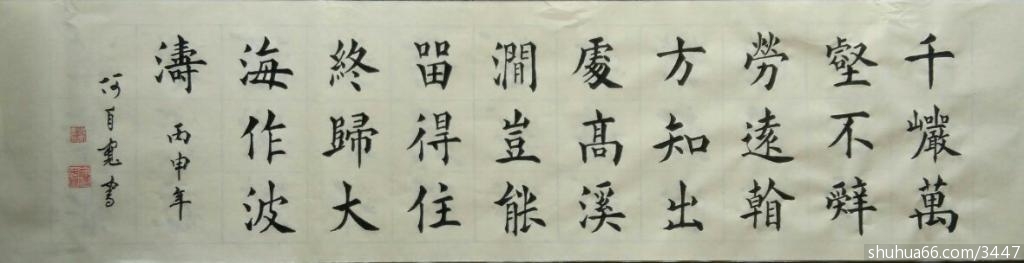 千巗萬
壑不辤
勞遠
方知出
處髙溪
澗豈能
留得住
終歸大
海作波
濤 丙申年
書
shuhua66.com/3447